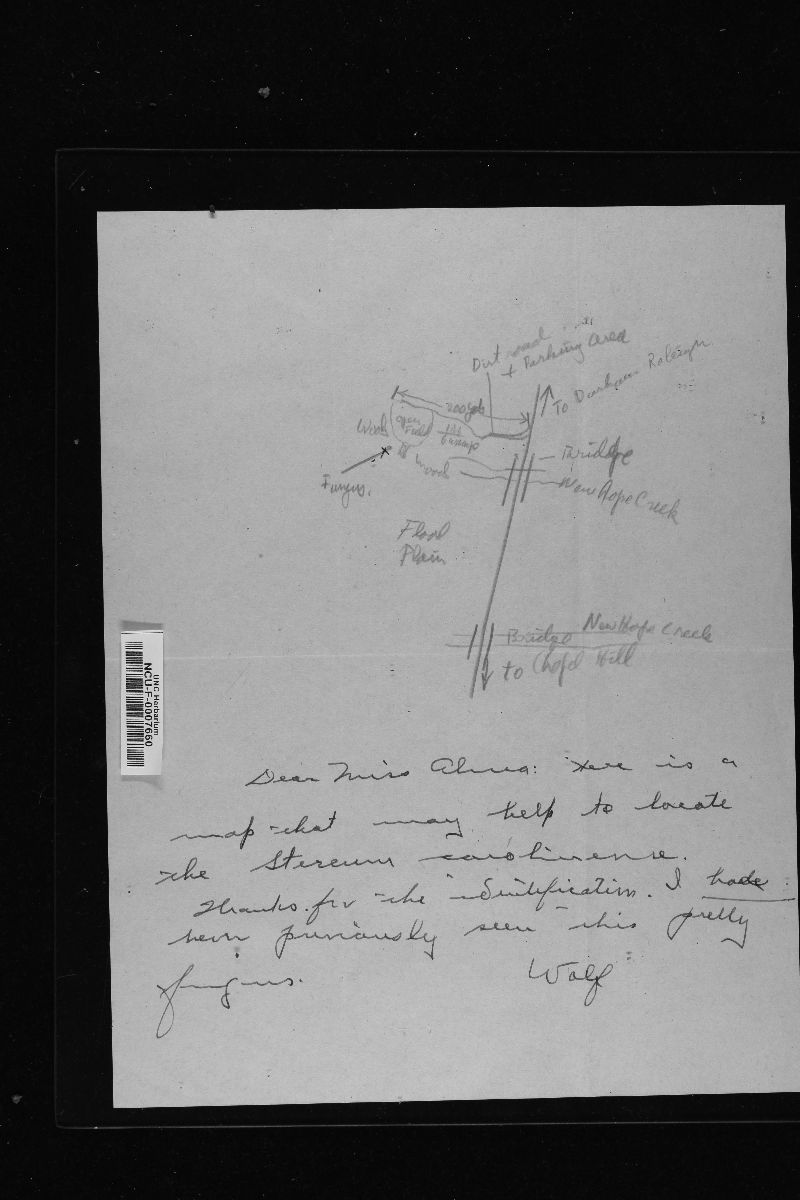 Dirt road
+ Parking area
To Durham Raleigh
200 yds
Woods
open
Field
swamp
Woods
Fungus.
Bridge
New Hope Creek
Flood
Plain
Bridge New Hope Creek
to Chapel Hill
UNC Herbarium
NCU-F-0007660
Dear Miss Alma: Here is a
map that may help to locate
the Stereum carolinense.
Thanks for the identification. I had
never previously seen this pretty
fungus. Wolf